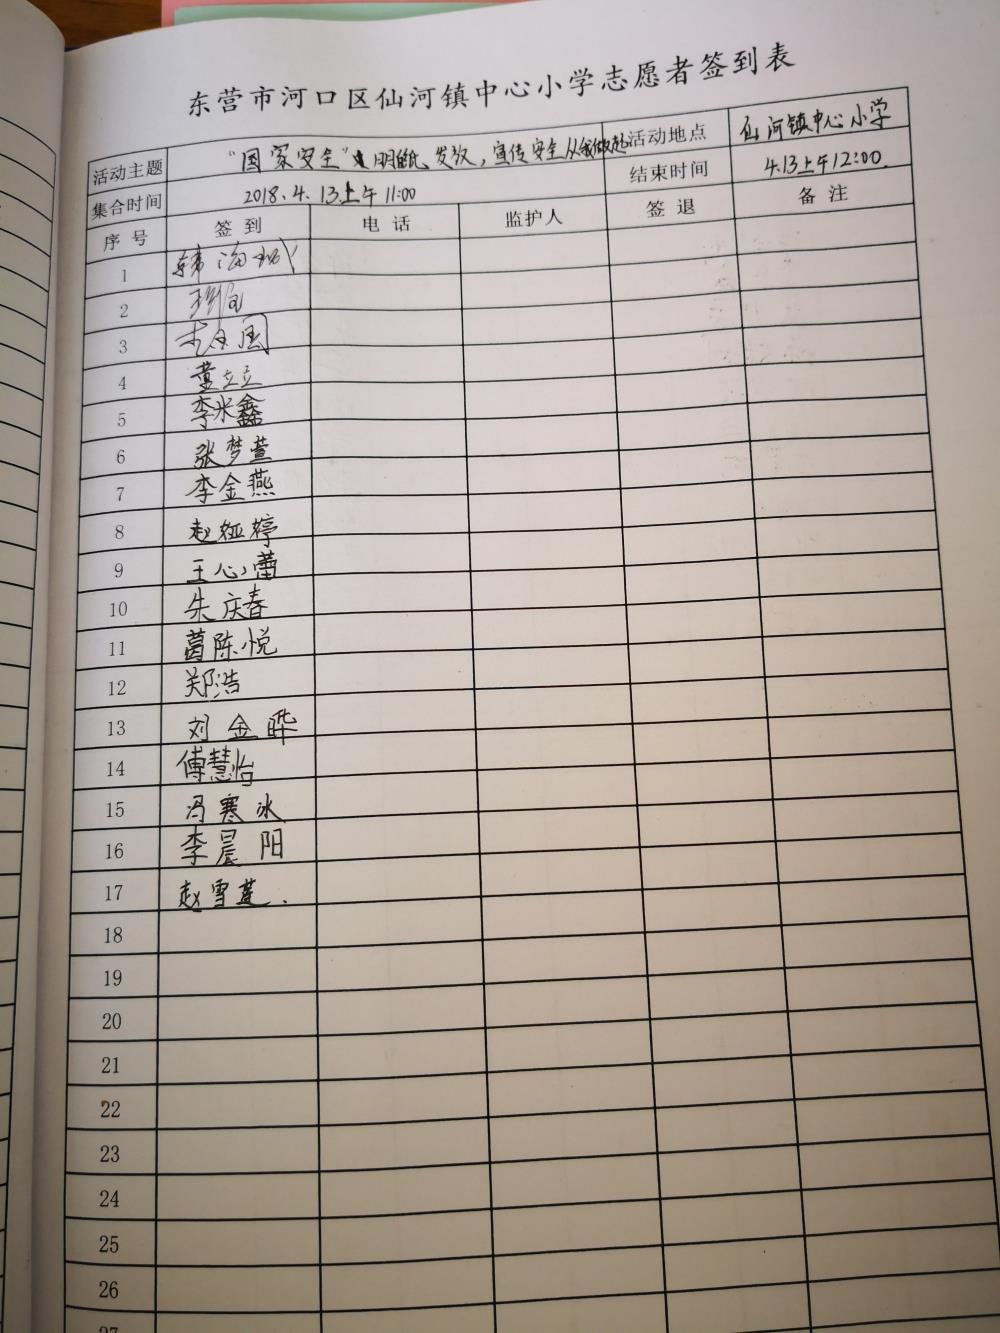 东营市河口区仙河镇中心小学志愿者签到表
活动主题 "国家安全" 明白纸发放，宣传安全从我做起 活动地点 仙河镇中心小学
集合时间 2018.4.13上午11:00 结束时间 4.13上午12:00.
序号 签到 电话 监护人 签退 备注
1 韩海城
2
3 国
4 董立立
5 李米鑫
6 张梦萱
7 李金燕
8 赵娅婷
9 王心蕾
10 朱庆春
11 葛陈悦
12 郑浩
13 刘金晔
14 傅慧怡
15 冯寒冰
16 李晨阳
17 赵雪莲.
18
19
20
21
22
23
24
25
26
27